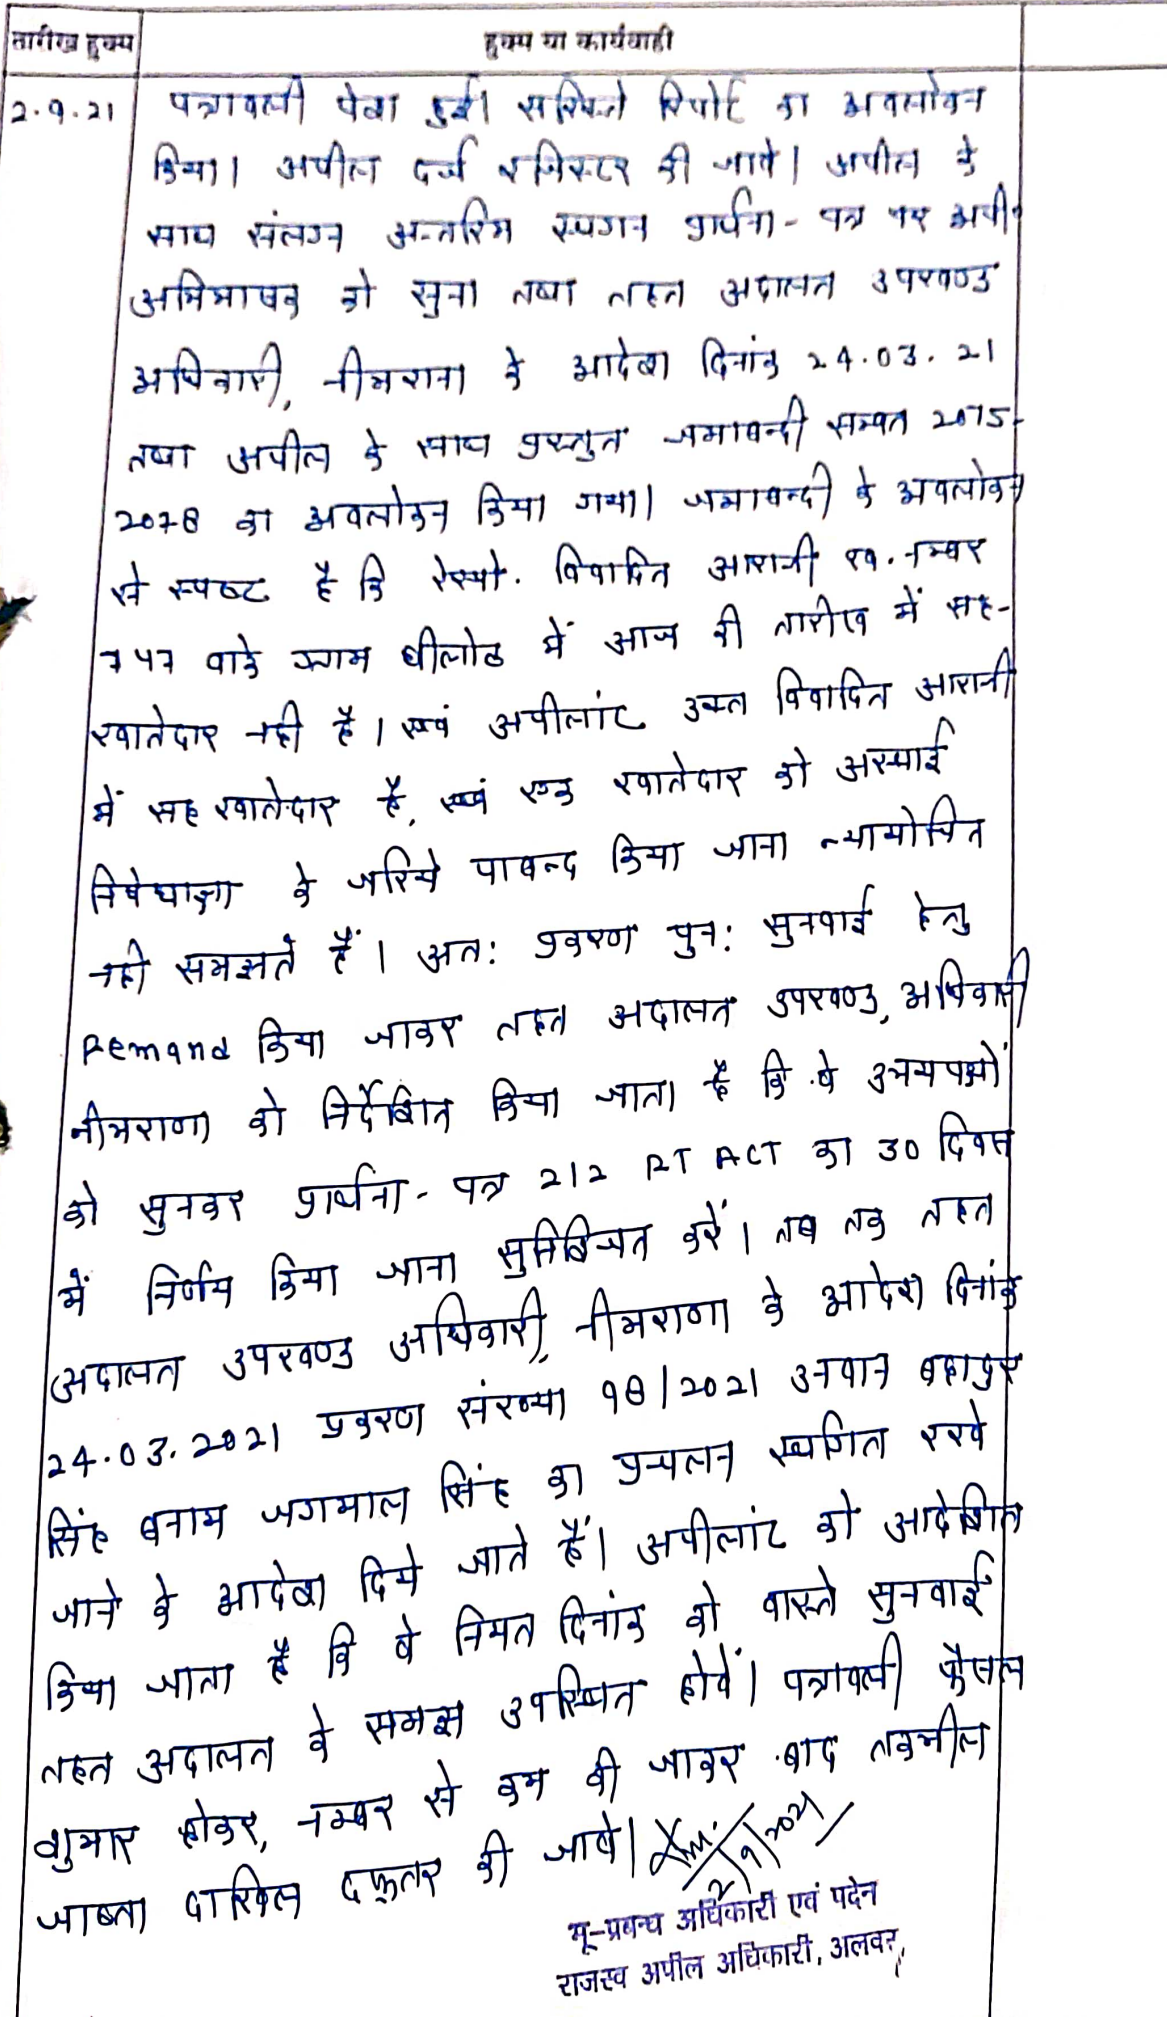 तारीख हुक्म
हुक्म या कार्यवाही
2.9.21
पत्रावली पेश हुई। सरिश्ते रिपोर्ट का अवलोकन
किया। अपील दर्ज रजिस्टर की जावे। अपील के
साथ संलग्न अन्तरिम स्थगन प्रार्थना-पत्र पर अपी०
अभिभाषक को सुना तथा तहत अदालत उपखण्ड
अधिकारी, नीमराना के आदेश दिनांक 24.03.21
तथा अपील के साथ प्रस्तुत जमाबन्दी सम्वत 2075-
2078 का अवलोकन किया गया। जमाबन्दी के अवलोकन
से स्पष्ट है कि रेस्पो. विवादित आराजी ख. नम्बर
747 वाके ग्राम घीलोठ में आज की तारीख में सह-
खातेदार नही है। एवं अपीलांट उक्त विवादित आराजी
में सह खातेदार है, एवं एक खातेदार को अस्थाई
निषेधाज्ञा के जरिये पाबन्द किया जाना न्यायोचित
नही समझते हैं। अत: प्रकरण पुन: सुनवाई हेतु
Remand किया जाकर तहत अदालत उपखण्ड, अधिकारी
नीमराणा को निर्देशित किया जाता है कि वे उभयपक्षों
को सुनकर प्रार्थना-पत्र 212 RT ACT का 30 दिवस
में निर्णय किया जाना सुनिश्चित करें। तब तक तहत
अदालत उपखण्ड अधिकारी, नीमराणा के आदेश दिनांक
24.03.2021 प्रकरण संख्या 98/2021 उनवान बहादुर
सिंह बनाम जगमाल सिंह का प्रचलन स्थगित रखे
जाने के आदेश दिये जाते हैं। अपीलांट को आदेशित
किया जाता है कि वे नियत दिनांक को वास्ते सुनवाई
तहत अदालत के समक्ष उपस्थित होवें। पत्रावली फैसल
शुमार होकर, नम्बर से कम की जाकर बाद तकमील
जाब्ता दाखिल दफ्तर की जावे।
2/9/2021
भू-प्रबन्ध अधिकारी एवं पदेन
राजस्व अपील अधिकारी, अलवर